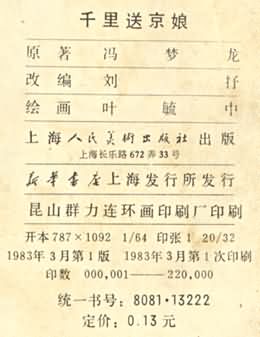 千里送京娘
原著 冯梦龙
改编 刘抒
绘画 叶毓中
上海人民美術出版社 出版
上海长乐路 672 弄 33 号
新华书店上海发行所发行
昆山群力连环画印刷厂印刷
开本 787×1092 1/64 印张 1 20/32
1983年3月第1版 1983年3月第1次印刷
印数 000,001——220,000
统一书号: 8081·13222
定价: 0.13 元